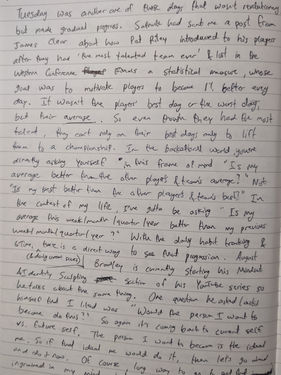 Tuesday was another one of those days that wasn't revolutionary
but made gradual progress. Sahil had sent me a post from
James Clear about how Pat Riley introduced to his players
after they had 'the most talented team ever' & lost in the
Western Conference Finals a statistical measure, whose
goal was to motivate players to become 1% better every
day. It wasn't the players' best day or the worst day,
but their average. So even though they had the most
talent, they can't rely on their best days only to lift
them to a championship. In the basketball world you're
directly asking yourself in this frame of mind "Is my
average better than the other players & team's average?" Not
"Is my best better than the other players & team's best?" In
the context of my life, I've gotta be asking "Is my
average this week/month/quarter/year better than my previous
week/month/quarter/year?" With the daily habit tracking &
there is a direct way to see that progression. August
Bradley is currently starting his Mindset
& Identity Sculpting section of his YouTube series so
he talks about the same thing. One question he asked
himself that I liked was "Would the person I want to
become do this?" So again it's coming back to current self
vs. future self. The person I want to become is the ideal
me. So if that ideal me would do it, then let's go ahead
and do it now. Of course long way to go to get that
ingrained in my mind